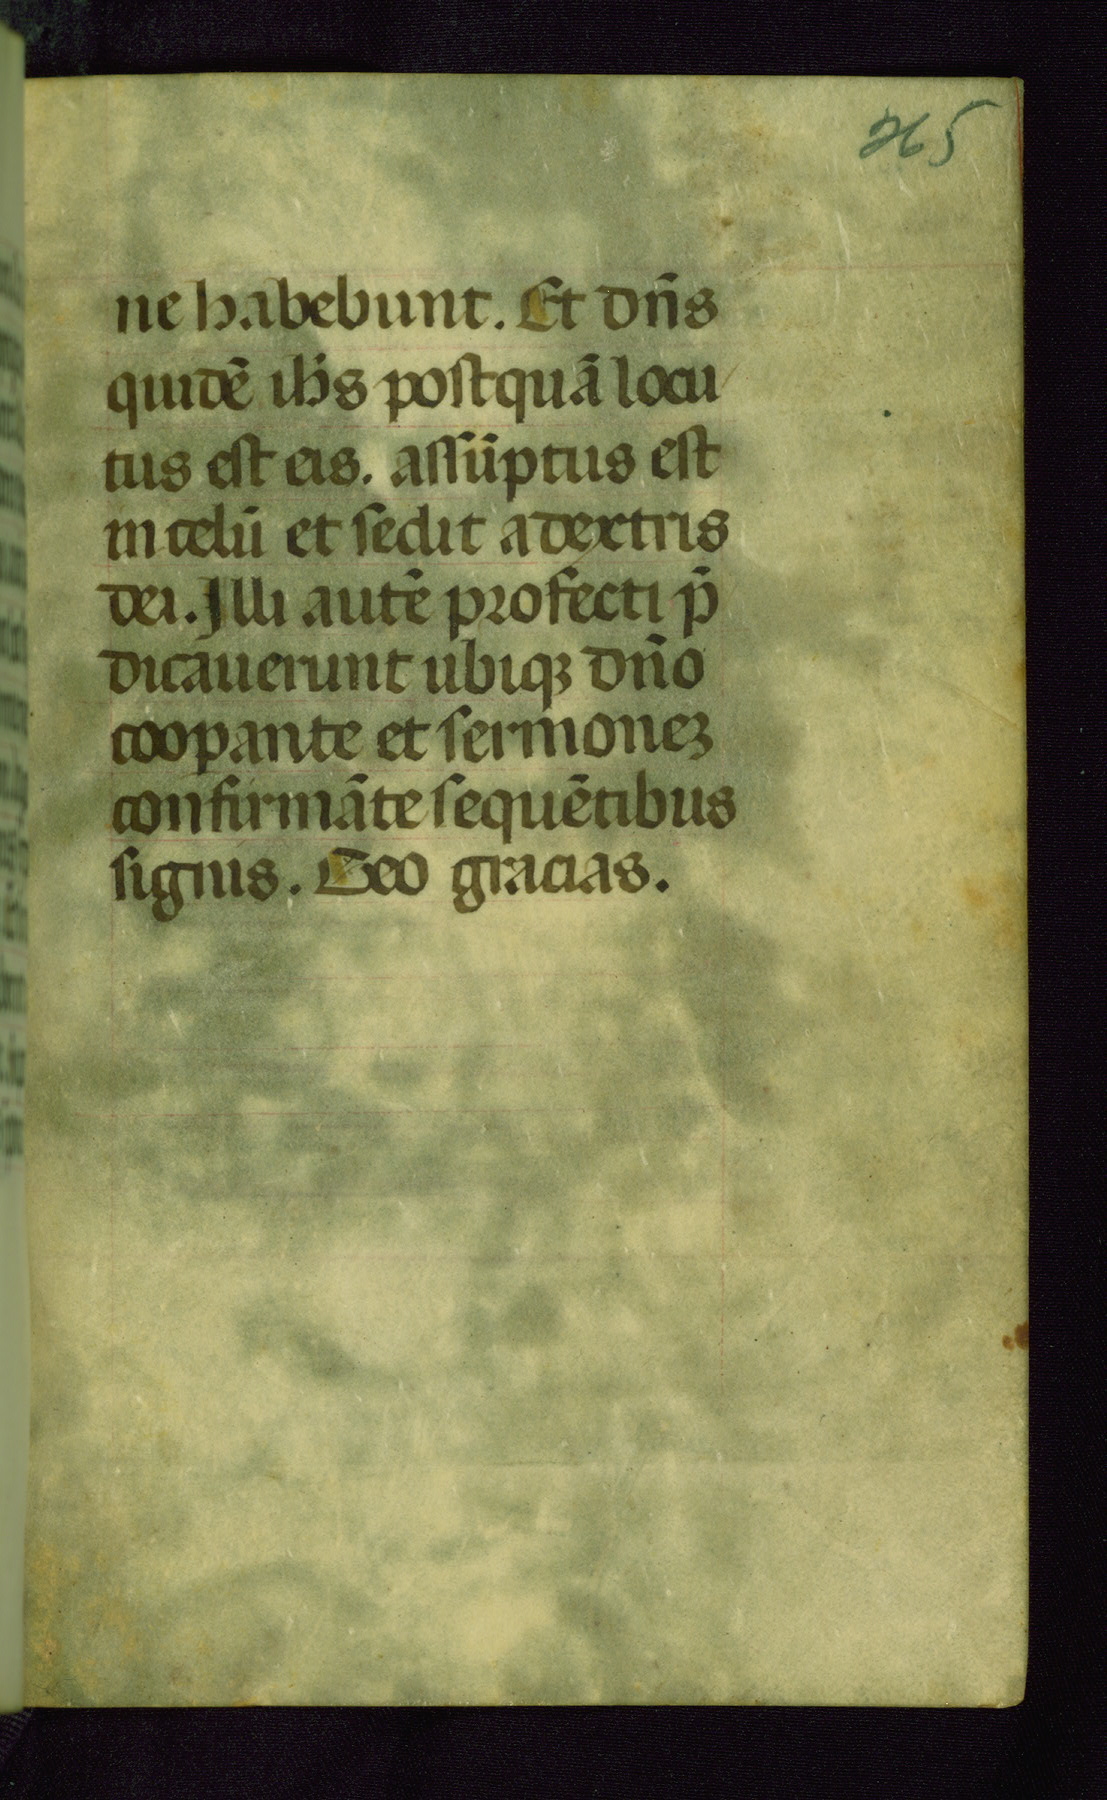 265
ne habebunt. Et dñs
quidē ihs postquā locu
tus est eis. assūptus est
in celū et sedit a dextris
dei. Illi autē profecti p̄
dicauerunt ubiqꝫ dño
coopante et sermoneꝫ
confirmāte sequētibus
signis. Deo gracias.